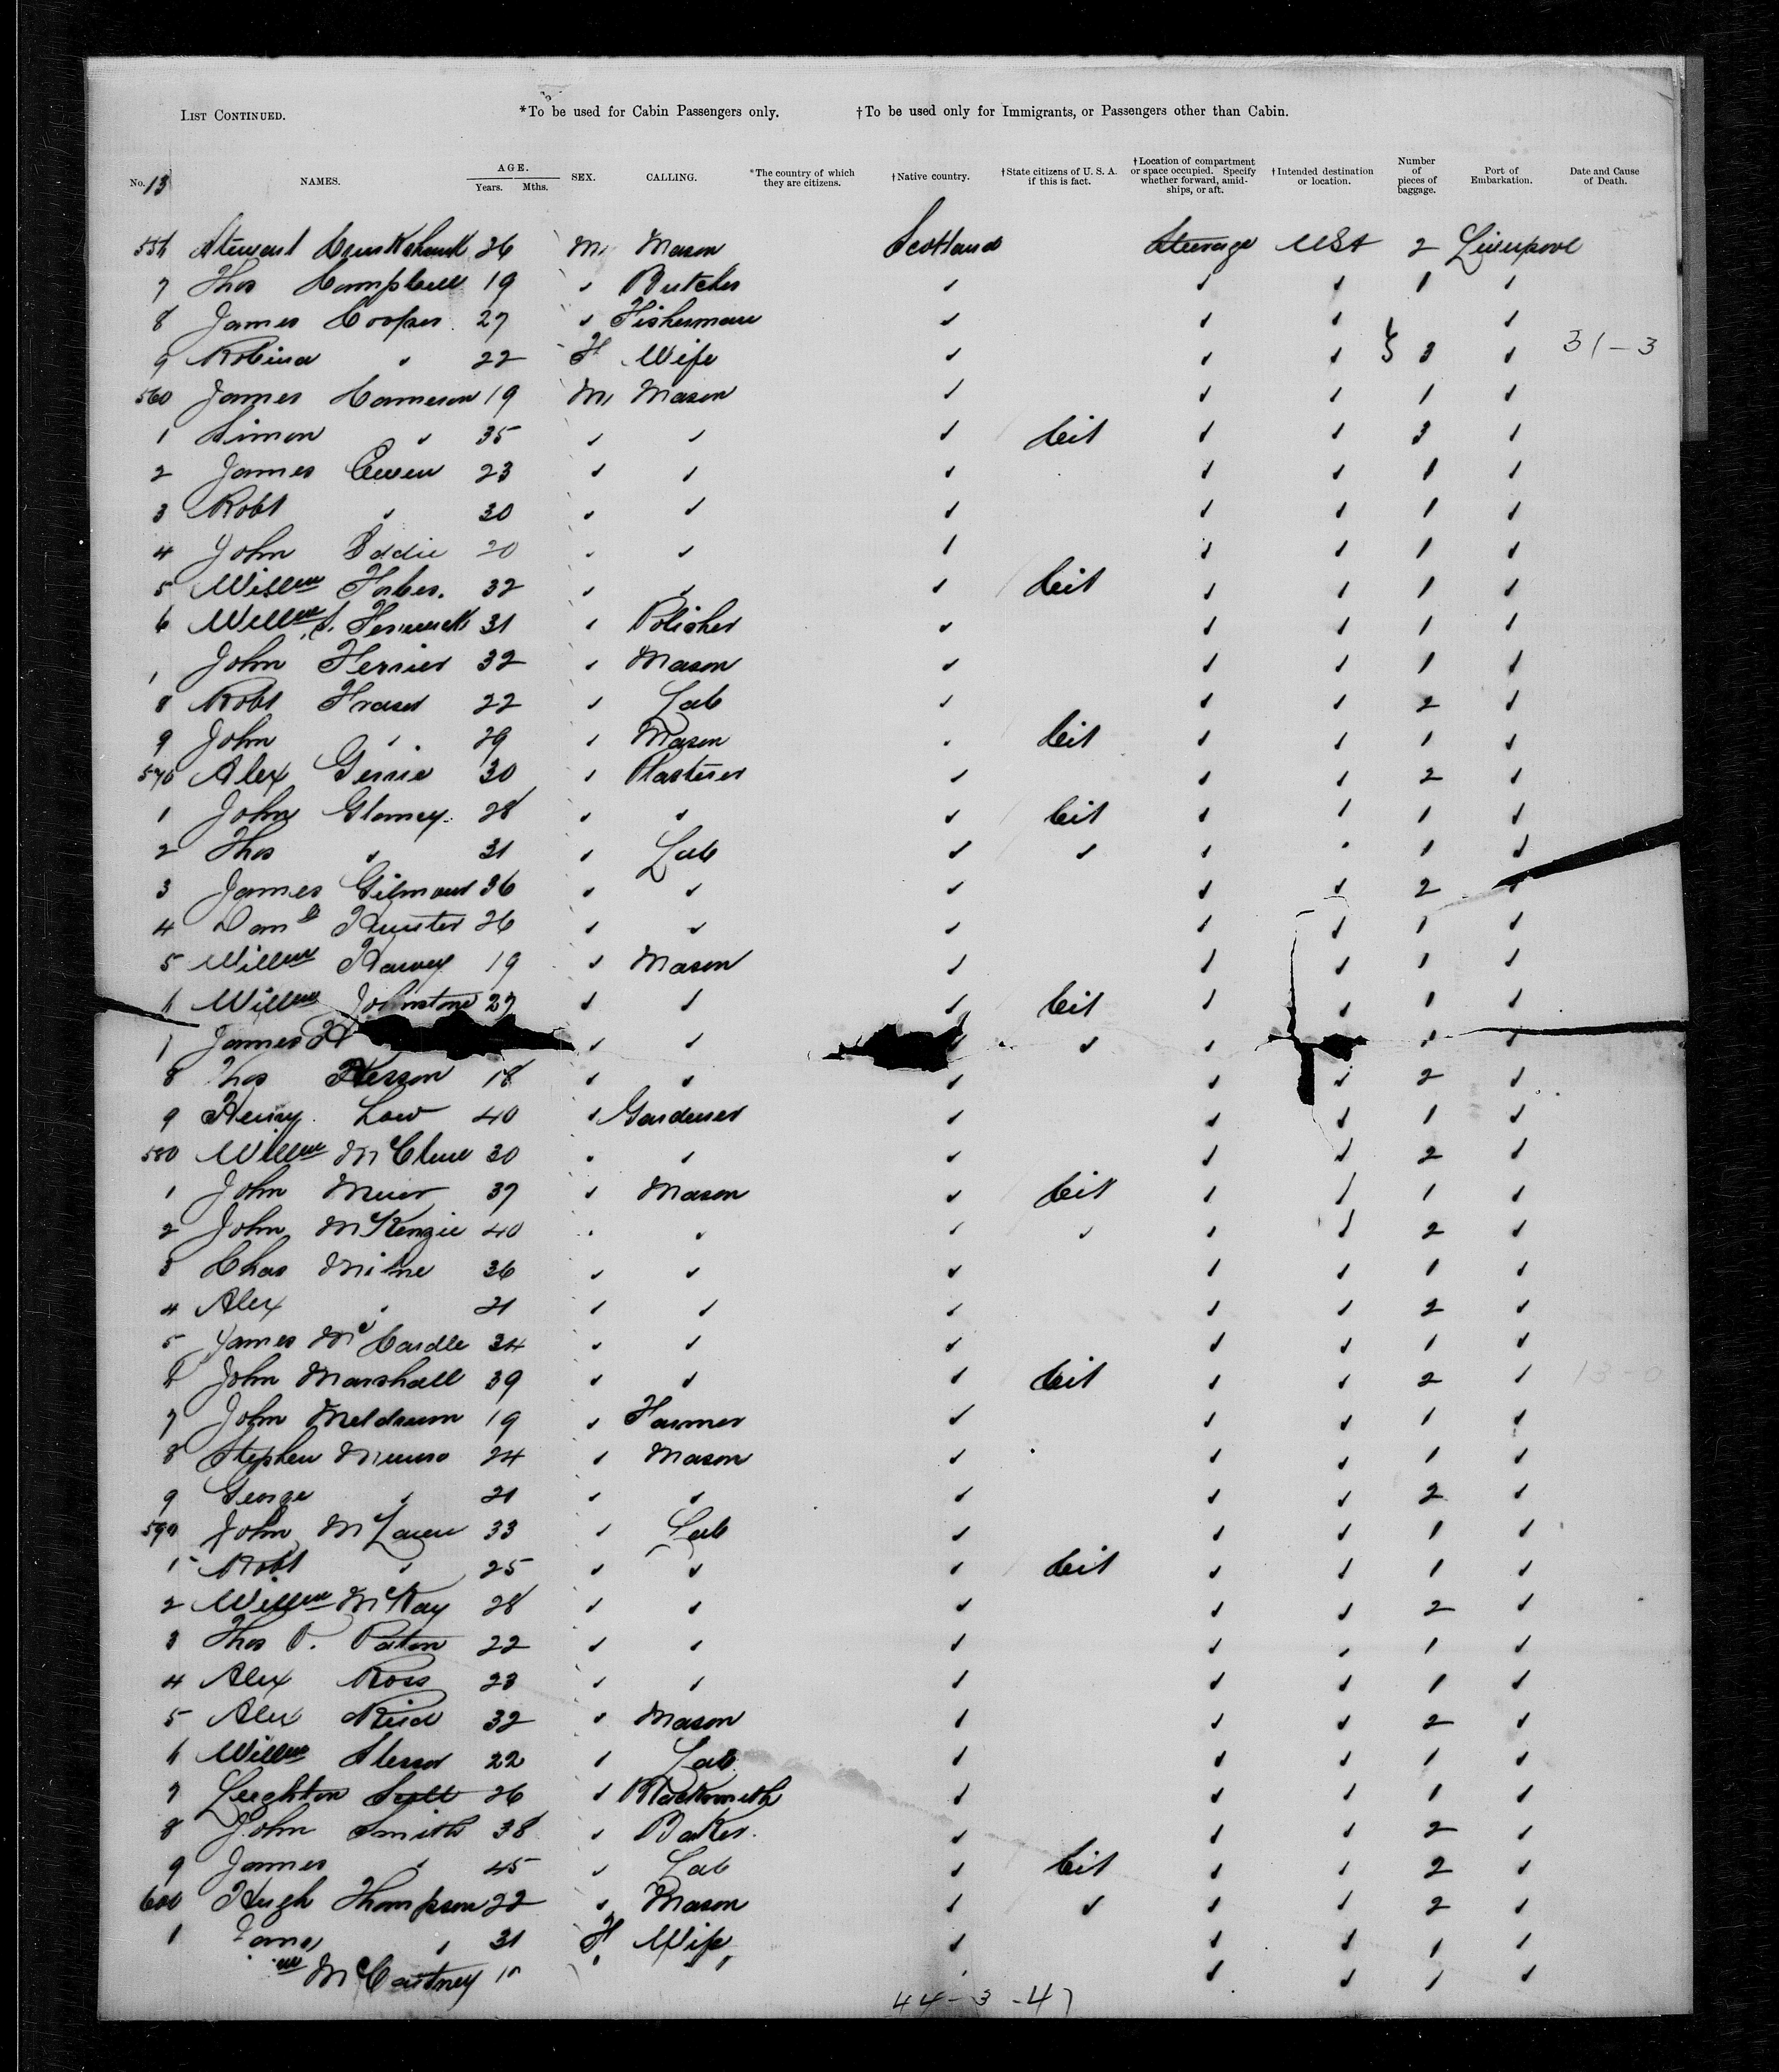 LIST CONTINUED. *To be used for Cabin Passengers only. †To be used only for Immigrants, or Passengers other than Cabin.
No. 13 NAMES. AGE. Years. Mths. SEX. CALLING. *The country of which they are citizens. †Native country. †State citizens of U. S. A. if this is fact. †Location of compartment or space occupied. Specify whether forward, amidships, or aft. †Intended destination or location. Number of pieces of baggage. Port of Embarkation. Date and Cause of Death.
556 Stewart Cruikshank 26 M Mason Scotland Steerage USA 2 Liverpool
7 Thos Campbell 19 ✓ Butcher ✓ ✓ ✓ 1 ✓
8 James Cooper 27 ✓ Fisherman ✓ ✓ ✓ ✓
9 Robina ✓ 22 F Wife ✓ ✓ ✓ 3 ✓ 31-3
560 James Cameron 19 M Mason ✓ ✓ ✓ 1 ✓
1 Simon ✓ 35 ✓ ✓ ✓ Cit ✓ ✓ 3 ✓
2 James Ewen 23 ✓ ✓ ✓ ✓ ✓ 1 ✓
3 Robt ✓ 30 ✓ ✓ ✓ ✓ ✓ 1 ✓
4 John Eddie 20 ✓ ✓ ✓ ✓ ✓ 1 ✓
5 Willm Forbes. 32 ✓ ✓ ✓ Cit ✓ ✓ 1 ✓
6 Willm S. Fenwick 31 ✓ Polisher ✓ ✓ ✓ 1 ✓
John Ferrier 32 ✓ Mason ✓ ✓ ✓ 1 ✓
8 Robt Fraser 22 ✓ Lab ✓ ✓ ✓ 2 ✓
9 John ✓ 29 ✓ Mason ✓ Cit ✓ ✓ 1 ✓
570 Alex Gerrie 30 ✓ Plasterer ✓ ✓ ✓ 2 ✓
1 John 28 ✓ ✓ ✓ Cit ✓ ✓ 1 ✓
2 Thos ✓ 31 ✓ Lab ✓ ✓ ✓ ✓ 1 ✓
3 James Gilmour 36 ✓ ✓ ✓ ✓ ✓ 2 ✓
4 Danl Hunter 26 ✓ ✓ ✓ ✓ ✓ 1 ✓
5 Willm Harvey 19 ✓ Mason ✓ ✓ ✓ 1 ✓
6 Willm Johnstone 27 ✓ ✓ ✓ Cit ✓ ✓ 1 ✓
James ✓ ✓ ✓ ✓ ✓ 1 ✓
8 Thos 18 ✓ ✓ ✓ ✓ ✓ 2 ✓
9 Henry Low 40 ✓ Gardener ✓ ✓ ✓ 1 ✓
580 Willm McClure 30 ✓ ✓ ✓ ✓ ✓ 2 ✓
1 John Muir 37 ✓ Mason ✓ Cit ✓ ✓ 1 ✓
2 John McKenzie 40 ✓ ✓ ✓ ✓ ✓ ✓ 2 ✓
3 Chas Milne 36 ✓ ✓ ✓ ✓ ✓ 1 ✓
4 Alex ✓ 21 ✓ ✓ ✓ ✓ ✓ 2 ✓
5 James McCardle 34 ✓ ✓ ✓ ✓ ✓ 1 ✓
6 John Marshall 39 ✓ ✓ ✓ Cit ✓ ✓ 2 ✓
7 John Meldrum 19 ✓ Farmer ✓ ✓ ✓ 1 ✓
8 Stephen Munro 24 ✓ Mason ✓ ✓ ✓ 1 ✓
9 George ✓ 21 ✓ ✓ ✓ ✓ ✓ 2 ✓
590 John McLaren 33 ✓ Lab ✓ ✓ ✓ 1 ✓
1 Robt ✓ 25 ✓ ✓ ✓ Cit ✓ ✓ 1 ✓
2 Willm McKay 28 ✓ ✓ ✓ ✓ ✓ 2 ✓
3 Thos P. Paton 22 ✓ ✓ ✓ ✓ ✓ 1 ✓
4 Alex Ross 23 ✓ ✓ ✓ ✓ ✓ 1 ✓
5 Alex Reid 32 ✓ Mason ✓ ✓ ✓ 2 ✓
6 Willm Slessor 22 ✓ Lab ✓ ✓ ✓ 1 ✓
7 Leighton Scott 26 ✓ Blacksmith ✓ ✓ ✓ 1 ✓
8 John Smith 38 ✓ Baker. ✓ ✓ ✓ 2 ✓
9 James ✓ 45 ✓ Lab ✓ Cit ✓ ✓ 2 ✓
600 Hugh Thompson 22 ✓ Mason ✓ ✓ ✓ ✓ 2 ✓
1 ✓ 31 F Wife ✓ ✓ ✓ 1 ✓
McCartney ✓ ✓ 1 ✓
44-3-47